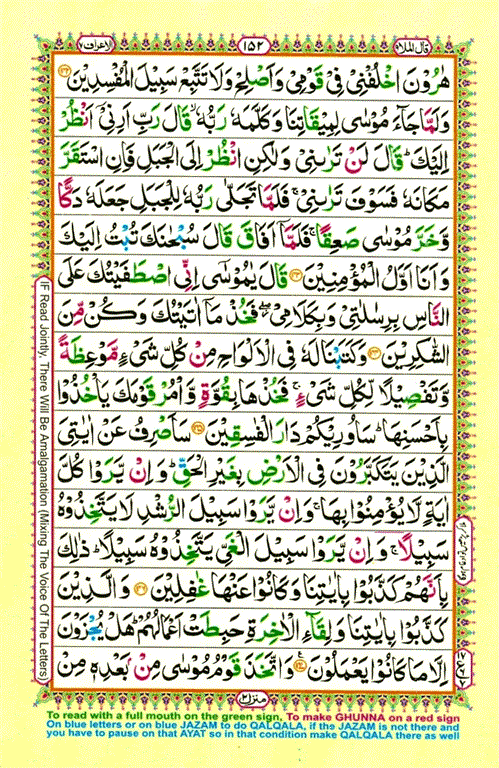 قال الملا ۹
۱۵۲
الاعراف ۷
هٰرُوْنَ اخْلُفْنِیْ فِیْ قَوْمِیْ وَاَصْلِحْ وَلَا تَتَّبِعْ سَبِیْلَ الْمُفْسِدِیْنَ ﴿۱۴۲﴾
وَلَمَّا جَآءَ مُوْسٰی لِمِیْقَاتِنَا وَكَلَّمَهٗ رَبُّهٗ ۙ قَالَ رَبِّ اَرِنِیْۤ اَنْظُرْ
اِلَیْكَ ؕ قَالَ لَنْ تَرٰىنِیْ وَلٰكِنِ انْظُرْ اِلَی الْجَبَلِ فَاِنِ اسْتَقَرَّ
مَكَانَهٗ فَسَوْفَ تَرٰىنِیْ ۚ فَلَمَّا تَجَلّٰی رَبُّهٗ لِلْجَبَلِ جَعَلَهٗ دَكًّا
وَّخَرَّ مُوْسٰی صَعِقًا ۚ فَلَمَّاۤ اَفَاقَ قَالَ سُبْحٰنَكَ تُبْتُ اِلَیْكَ
وَاَنَا اَوَّلُ الْمُؤْمِنِیْنَ ﴿۱۴۳﴾ قَالَ یٰمُوْسٰۤی اِنِّی اصْطَفَیْتُكَ عَلَی
النَّاسِ بِرِسٰلٰتِیْ وَبِكَلَامِیْ ۖ فَخُذْ مَاۤ اٰتَیْتُكَ وَكُنْ مِّنَ
الشّٰكِرِیْنَ ﴿۱۴۴﴾ وَكَتَبْنَا لَهٗ فِی الْاَلْوَاحِ مِنْ كُلِّ شَیْءٍ مَّوْعِظَةً
وَّتَفْصِیْلًا لِّكُلِّ شَیْءٍ ۚ فَخُذْهَا بِقُوَّةٍ وَّاْمُرْ قَوْمَكَ یَاْخُذُوْا
بِاَحْسَنِهَا ؕ سَاُورِیْكُمْ دَارَ الْفٰسِقِیْنَ ﴿۱۴۵﴾ سَاَصْرِفُ عَنْ اٰیٰتِیَ
الَّذِیْنَ یَتَكَبَّرُوْنَ فِی الْاَرْضِ بِغَیْرِ الْحَقِّ ؕ وَاِنْ یَّرَوْا كُلَّ
اٰیَةٍ لَّا یُؤْمِنُوْا بِهَا ۚ وَاِنْ یَّرَوْا سَبِیْلَ الرُّشْدِ لَا یَتَّخِذُوْهُ
سَبِیْلًا ۚ وَاِنْ یَّرَوْا سَبِیْلَ الْغَیِّ یَتَّخِذُوْهُ سَبِیْلًا ؕ ذٰلِكَ
بِاَنَّهُمْ كَذَّبُوْا بِاٰیٰتِنَا وَكَانُوْا عَنْهَا غٰفِلِیْنَ ﴿۱۴۶﴾ وَالَّذِیْنَ
كَذَّبُوْا بِاٰیٰتِنَا وَلِقَآءِ الْاٰخِرَةِ حَبِطَتْ اَعْمَالُهُمْ ؕ هَلْ یُجْزَوْنَ
اِلَّا مَا كَانُوْا یَعْمَلُوْنَ ﴿۱۴۷﴾ وَاتَّخَذَ قَوْمُ مُوْسٰی مِنْۢ بَعْدِهٖ مِنْ
منزل ۲
IF Read Jointly, There Will Be Amalgamation (Mixing The Voice Of The Letters)
To read with a full mouth on the green sign, To make GHUNNA on a red sign
On blue letters or on blue JAZAM to do QALQALA, if the JAZAM is not there and
you have to pause on that AYAT so in that condition make QALQALA there as well